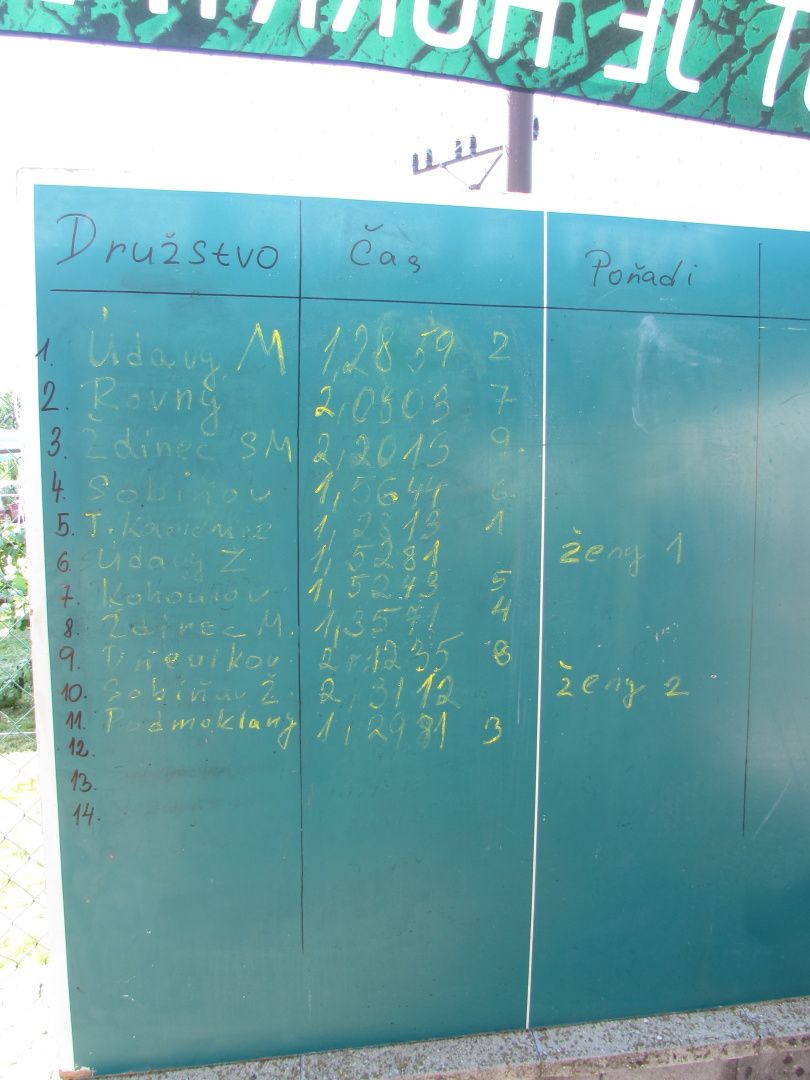 JE HOVAN
Družstvo Čas Pořadi
1. Údavy M 1,28 59 2
2. Rovný 2,0803 7
3. Ždírec SM 2,2015 9.
4. Sobíňov 1,5644 6.
5. T. Kamenice 1,2313 1
6. Údavy Ž 1,5281 ženy 1
7. Kohoutov 1,5243 5
8. Ždírec M. 1,3571 4
9. 2,1235 8
10. Sobíňov Ž. 2,3112 ženy 2
11. Podmoklany 1,2981 3
12.
13.
14.